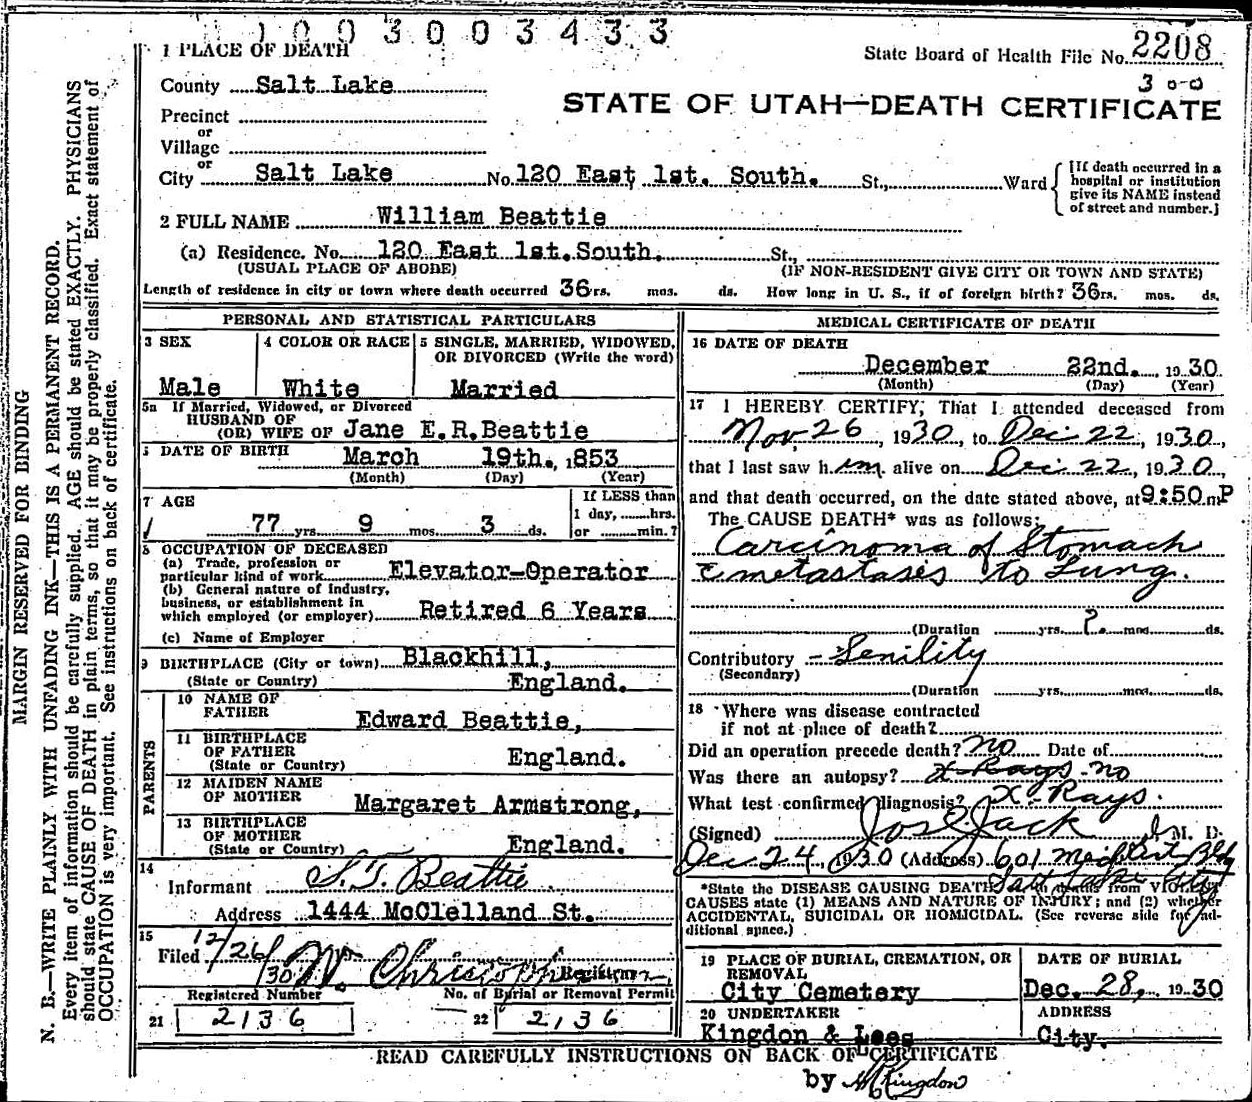 1003003433
1 PLACE OF DEATH
State Board of Health File No. 2208
300
County Salt Lake
STATE OF UTAH—DEATH CERTIFICATE
Precinct
or
Village
or
City Salt Lake No. 120 East 1st. South. St., Ward
[If death occurred in a hospital or institution give its NAME instead of street and number.]
2 FULL NAME William Beattie
(a) Residence. No. 120 East 1st. South. St.,
(USUAL PLACE OF ABODE) (IF NON-RESIDENT GIVE CITY OR TOWN AND STATE)
Length of residence in city or town where death occurred 36 yrs. mos. ds. How long in U. S., if of foreign birth? 36 yrs. mos. ds.
PERSONAL AND STATISTICAL PARTICULARS
3 SEX
Male
4 COLOR OR RACE
White
5 SINGLE, MARRIED, WIDOWED,
OR DIVORCED (Write the word)
Married
5a If Married, Widowed, or Divorced
HUSBAND OF
(OR) WIFE OF Jane E.R.Beattie
DATE OF BIRTH March 19th., 1853
(Month) (Day) (Year)
7 AGE
77 yrs. 9 mos. 3 ds.
If LESS than
1 day, hrs.
or min.?
8 OCCUPATION OF DECEASED
(a) Trade, profession or
particular kind of work Elevator-Operator
(b) General nature of Industry,
business, or establishment in
which employed (or employer) Retired 6 Years
(c) Name of Employer
9 BIRTHPLACE (City or town) Blackhill,
(State or Country) England.
PARENTS
10 NAME OF
FATHER Edward Beattie,
11 BIRTHPLACE
OF FATHER England.
(State or Country)
12 MAIDEN NAME
OF MOTHER Margaret Armstrong,
13 BIRTHPLACE
OF MOTHER
(State or Country) England.
14
Informant S.T. Beattie
Address 1444 McClelland St.
15
Filed 12/26/30 W. Christoph Registrar
Registered Number
21 2136
No. of Burial or Removal Permit
22 2136
MEDICAL CERTIFICATE OF DEATH
16 DATE OF DEATH
December 22nd., 1930
(Month) (Day) (Year)
17 I HEREBY CERTIFY, That I attended deceased from
Nov 26, 1930, to Dec 22, 1930,
that I last saw him alive on Dec 22, 1930,
and that death occurred, on the date stated above, at 9:50 mP
The CAUSE DEATH* was as follows:
Carcinoma of Stomach
c metastasis to Lung.
(Duration yrs. ?. mos. ds.
Contributory - Senility
(Secondary)
(Duration yrs. mos. ds.
18 Where was disease contracted
if not at place of death?
Did an operation precede death? no Date of
Was there an autopsy? X-Rays - no
What test confirmed diagnosis? X-Rays.
(Signed) Jos E Jack M. D.
Dec 24, 1930 (Address) 601 Med Art Bldg
Salt Lake City
*State the DISEASE CAUSING DEATH, in deaths from VIOLENT
CAUSES state (1) MEANS AND NATURE OF INJURY; and (2) whether
ACCIDENTAL, SUICIDAL OR HOMICIDAL. (See reverse side for ad-
ditional space.)
19 PLACE OF BURIAL, CREMATION, OR
REMOVAL
City Cemetery
DATE OF BURIAL
Dec. 28, 1930
20 UNDERTAKER
Kingdon & Lees
ADDRESS
City.
READ CAREFULLY INSTRUCTIONS ON BACK OF CERTIFICATE
by Kingdon
MARGIN RESERVED FOR BINDING
N. B.—WRITE PLAINLY WITH UNFADING INK—THIS IS A PERMANENT RECORD.
Every item of information should be carefully supplied. AGE should be stated EXACTLY. PHYSICIANS
should state CAUSE OF DEATH in plain terms, so that it may be properly classified. Exact statement of
OCCUPATION is very important. See instructions on back of certificate.